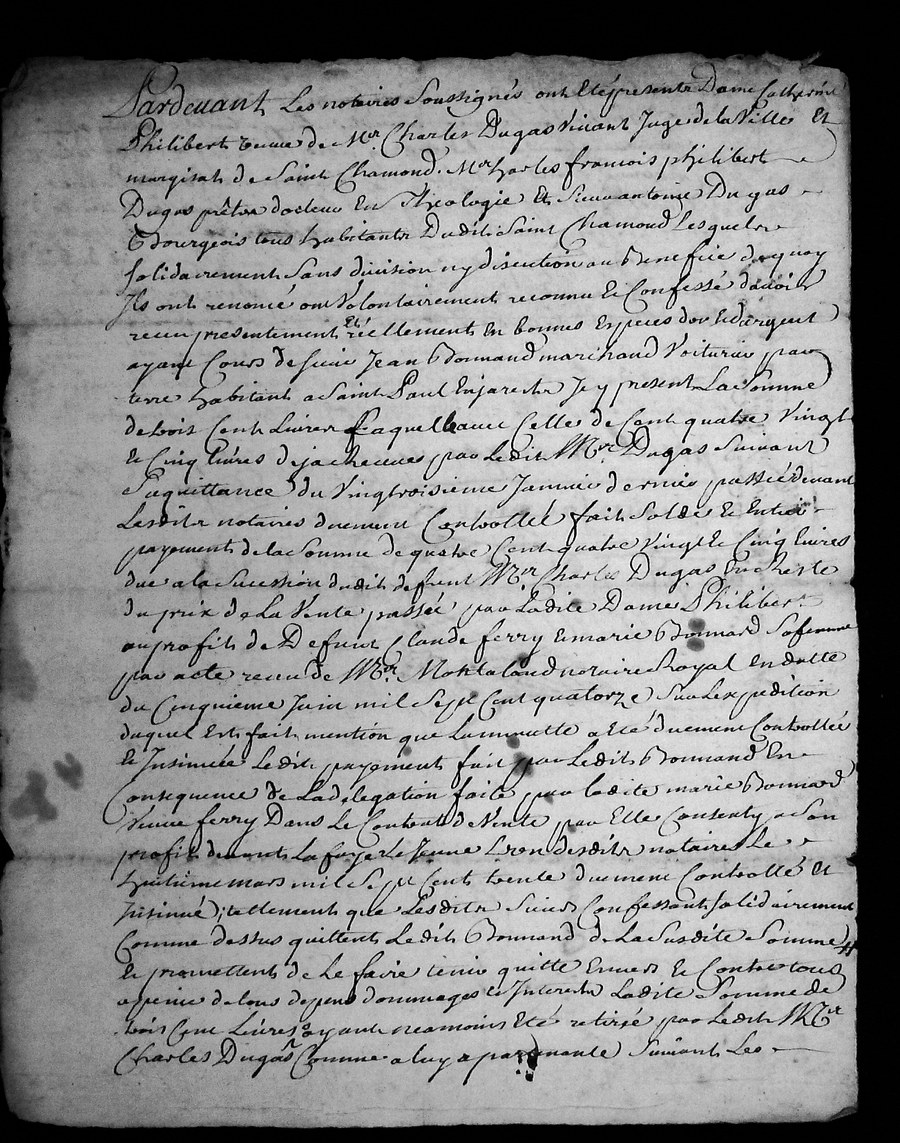 Pardevant Les notaires Soussignés ont Eté presente Dame Catherine
Philibert veuve de Mr. Charles Dugas vivant Juge de la Ville Et
margisat de Saint Chamond. Mr Charles francois philibert
Dugas prêtre docteur En Theologie Et Sieur antoine Dugas
Bourgeois tous habitants Dudit Saint Chamond Lesquels
solidairement Sans division ny discution au Benefice duquoy
Ils ont renoncé ont Volontairement reconnu Et Confessé d'avoir
receu presentement Et réellement En bonnes Especes dor Et dargent
ayant Cours de sieur Jean Bonnand marchand Voiturier par
terre habitant a Saint Paul Enjarest Icy present La Somme
de trois Cent Livres Laquelle avec Celle de Cent quatre Vingt
Et Cinq Livres deja receues par Ledit Mr. Dugas Suivant
Saquittance du Vingtroisieme Janvier dernier passée devant
Lesdits notaires duement Controllée fait Solde Et Entier
payement de la Somme de quatre Cent quatre Vingt Et Cinq Livres
due a la Sucession dudit defunt Mr. Charles Dugas En Reste
du prix de La Vente passée par Ladite Dame Philibert
au profit de Defunt Claude ferry Et marie Bonnard Safemme
par acte receu de Mr. Montaland notaire Royal En datte
du Cinquieme Juin mil Sept Cent quatorze Sur Lexpedition
duquel Est fait mention que Laminutte a Eté duement Controllée
Et Insinuée Ledit payement fait par Ledit Bonnand En
Consequence de La delegation faite par ladite marie Bonnard
Veuve ferry Dans Le Contrat de Vente par Elle Consenty a Son
profit devant Lafuye Le Jeune L'un desdits notaires Le
huitieme mars mil Sept Cent trente duement Controllé Et
Insinué; tellement que Lesdits Sieurs Confessants solidairement
Comme dessus quittent Ledit Bonnand de La Susdite Somme
Et promettent de Le faire tenir quitte Envers Et Contre tous
a peine de tous depens dommages Et Interests Ladite Somme de
trois Cent Livres ayant neamoins Eté retirée par Ledit Mr.
Charles Dugas Comme a luy apartenante Suivant Les